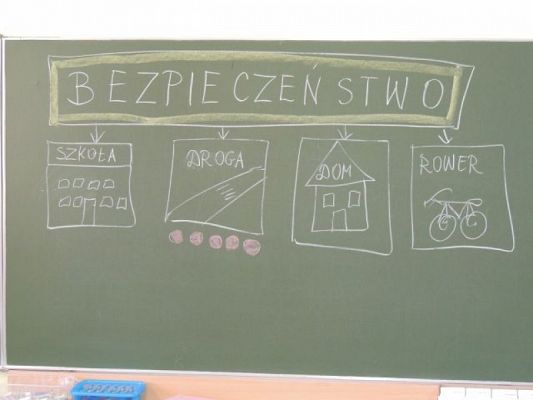 BEZPIECZEŃSTWO
SZKOŁA
DROGA
DOM
ROWER